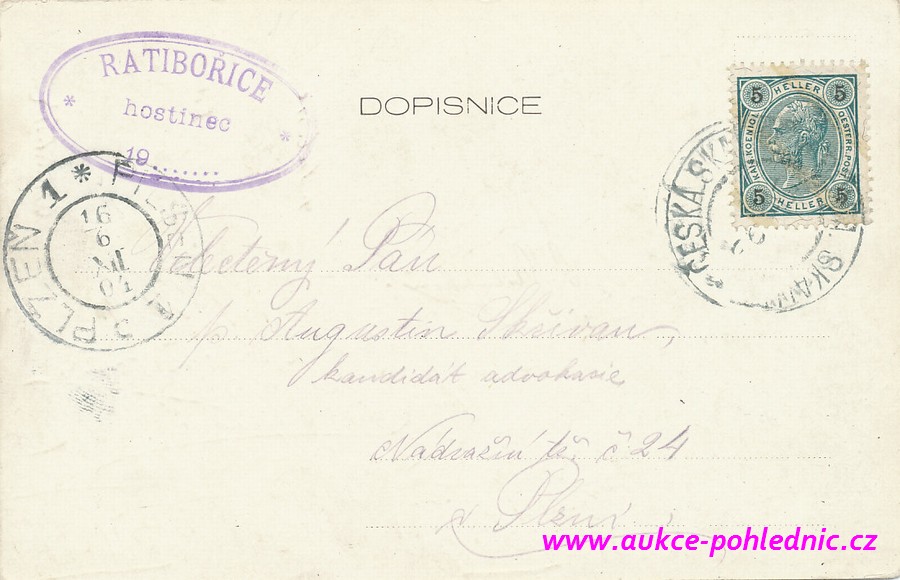 RATIBOŘICE
hostinec
19........
DOPISNICE
5 HELLER 5
KAIS. KOENIGL. OESTERR. POST
5 HELLER 5
ČESKÁ SKA
PLZEŇ 1 * PILSEN 1
16
6
XI
04
Velectěný Pán
p. Augustin Skřivan,
kandidát advokacie
Nádražní tř. č. 24
v Plzni
www.aukce-pohlednic.cz